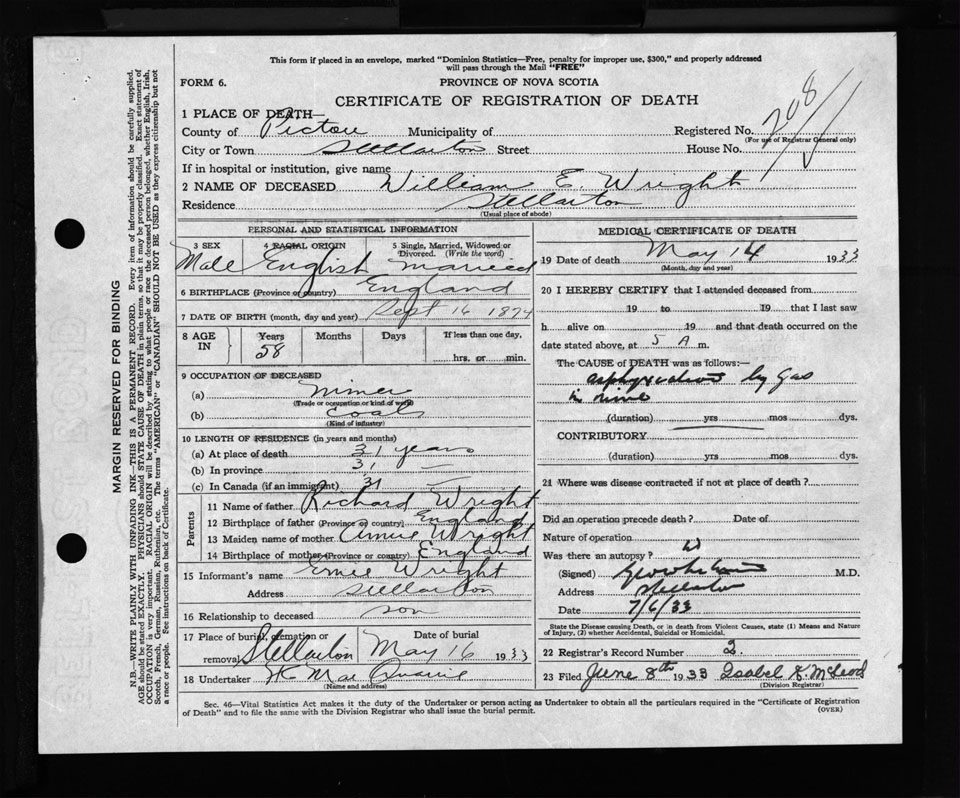 This form if placed in an envelope, marked "Dominion Statistics—Free, penalty for improper use, $300," and properly addressed
will pass through the Mail "FREE"
FORM 6.
PROVINCE OF NOVA SCOTIA
CERTIFICATE OF REGISTRATION OF DEATH
1 PLACE OF DEATH—
County of Pictou Municipality of Registered No. 708
(For use of Registrar General only)
City or Town Stellarton Street House No.
If in hospital or institution, give name
2 NAME OF DECEASED William E. Wright
Residence Stellarton
(Usual place of abode)
PERSONAL AND STATISTICAL INFORMATION
3 SEX 4 RACIAL ORIGIN 5 Single, Married, Widowed or
Divorced. (Write the word)
Male English married
6 BIRTHPLACE (Province or country) England
7 DATE OF BIRTH (month, day and year) Sept 16 1874
8 AGE IN Years Months Days If less than one day,
58 hrs. or min.
9 OCCUPATION OF DECEASED
(a) miner
(Trade or occupation or kind of work)
(b) Coal
(Kind of industry)
10 LENGTH OF RESIDENCE (in years and months)
(a) At place of death 31 years
(b) In province 31 —
(c) In Canada (if an immigrant) 31 —
Parents
11 Name of father Richard Wright
12 Birthplace of father (Province or country) England
13 Maiden name of mother Wright
14 Birthplace of mother (Province or country) England
15 Informant's name Wright
Address Stellarton
16 Relationship to deceased son
17 Place of burial, cremation or Date of burial
removal Stellarton May 16 1933
18 Undertaker
(Name and address)
MEDICAL CERTIFICATE OF DEATH
19 Date of death May 14 1933
(Month, day and year)
20 I HEREBY CERTIFY that I attended deceased from
19 to 19 that I last saw
h alive on 19 and that death occurred on
date stated above, at 5 A m.
The CAUSE of DEATH was as follows:—
asphyxiation by Gas
in mine
(duration) yrs mos dys.
CONTRIBUTORY
(duration) yrs. mos. dys.
21 Where was disease contracted if not at place of death?
Did an operation precede death? Date of
Nature of operation
Was there an autopsy?
(Signed) M.D.
Address Stellarton
Date 7/6/33
State the Disease causing Death, or in death from Violent Causes, state (1) Means and Nature
of Injury, (2) whether Accidental, Suicidal or Homicidal.
22 Registrar's Record Number 2.
23 Filed June 8th 1933 Isabel McLeod
(Division Registrar)
Sec. 46—Vital Statistics Act makes it the duty of the Undertaker or person acting as Undertaker to obtain all the particulars required in the "Certificate of Registration
of Death" and to file the same with the Division Registrar who shall issue the burial permit.
(OVER)
MARGIN RESERVED FOR BINDING
N.B.—WRITE PLAINLY WITH UNFADING INK—THIS IS A PERMANENT RECORD. Every item of information should be carefully supplied.
AGE should be stated EXACTLY. PHYSICIANS should STATE CAUSE OF DEATH in plain terms, so that it may be properly classified. Exact statement of
OCCUPATION is very important. RACIAL ORIGIN will be described by stating to what people or race the deceased person belonged, whether English, Irish,
Scotch, French, German, Russian, Ruthenian, etc. The terms "AMERICAN" or "CANADIAN" SHOULD NOT BE USED as they express citizenship but not
a race or people. See instructions on back of Certificate.